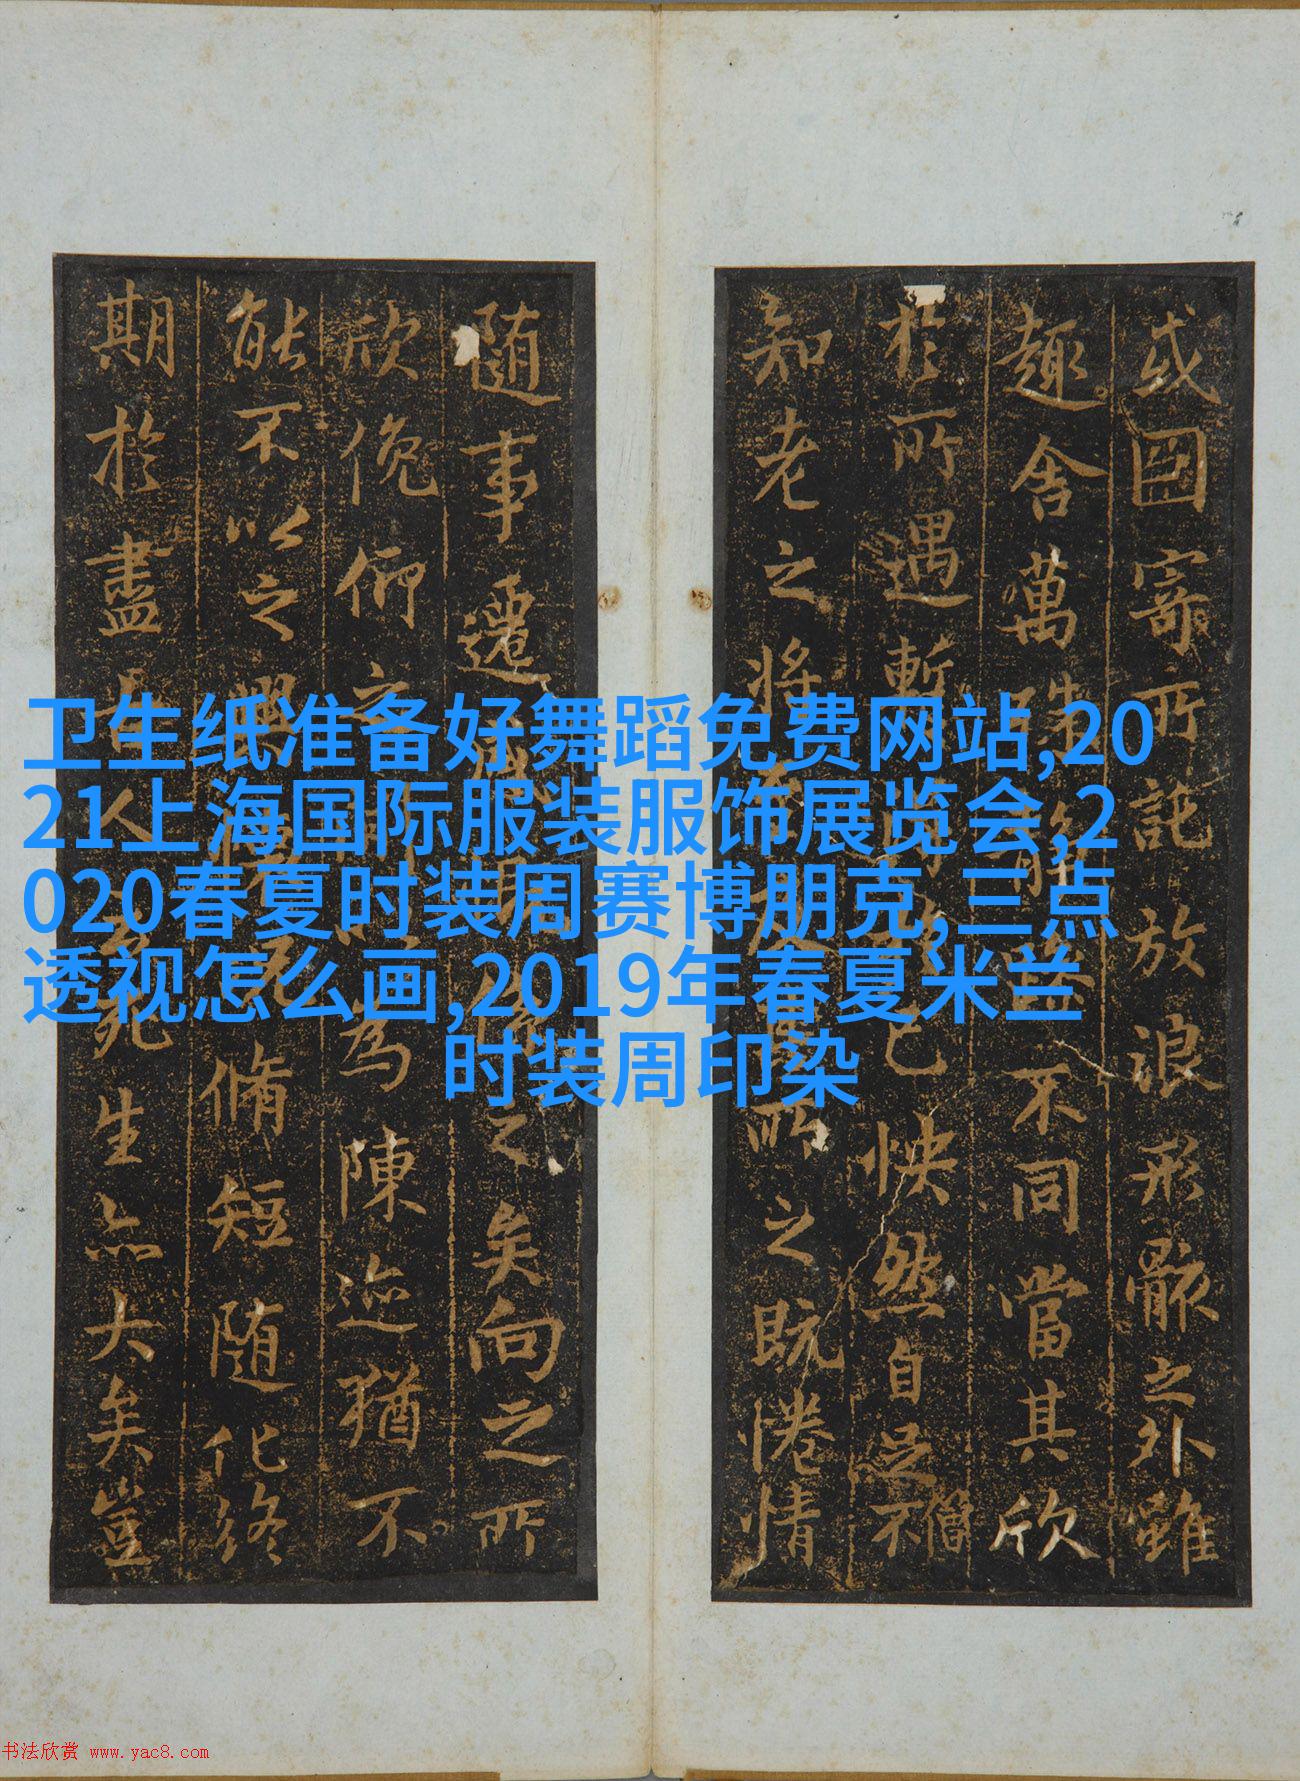 或因寄所託放浪形骸之外雖
趣舍萬殊不同當其欣
於所遇暫己怏然自足不
僧
知老之將所之既惓情
隨事遷之矣向之所
欣俛仰之為陳迹猶不
能不以之興脩短隨化終
期於盡人死生亦大矣豈
卫生纸准备好舞蹈免费网站,20
21上海国际服装服饰展览会,2
020春夏时装周赛博朋克,三点
透视怎么画,2019年春夏米兰
时装周印染
书法欣赏 www.yac8.com